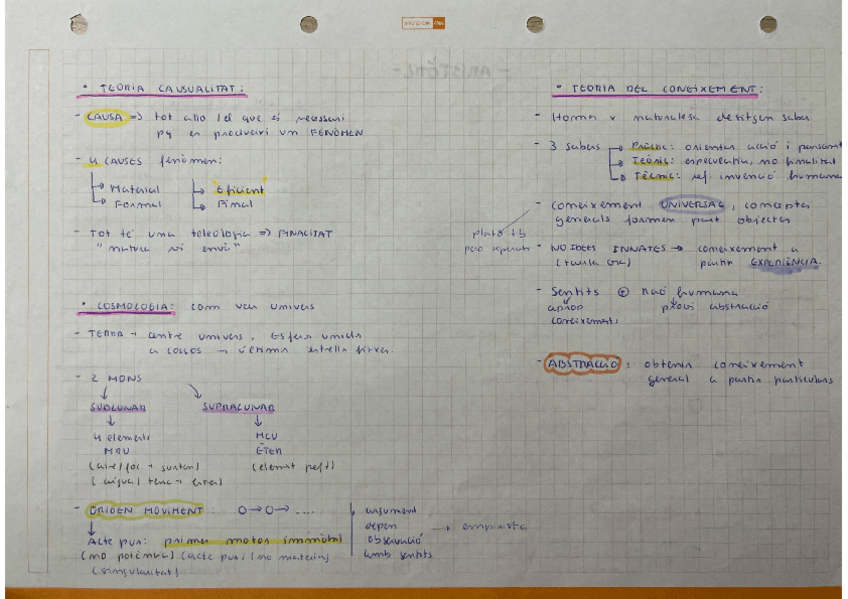 • TEORIA CAUSUALITAT:
- CAUSA => tot allo el que és necessari
pq es produeixi un FENÒMEN
- 4 CAUSES fenòmen:
Material
Formal
Eficient
Final
- Tot té una teleologia => FINALITAT
"natura
• COSMOLOGIA: com veu univers
- TERRA → centre univers, Esfera unida
a cossos → última estrella fixa.
- 2 MONS
SUBLUNAR
4 elements
MRU
(aire/foc → surten)
(aigua/terra →
SUPRALUNAR
MCU
ÈTER
(element
- ORIGEN MOVIMENT: O→O→ ....
Acte pur: primer motor immòbil
(no potència) (acte pur) (no matèria)
(singularitat)
argument
depen
observació
amb sentits
→ empirista
• TEORIA DEL CONEIXEMENT:
- Homes x naturalesa desitgen saber
- 3 sabers
Pràctic: orientar acció i pensament
Teòric: especulatiu, no finalitat
Tècnic: ref. invenció humana
- coneixement UNIVERSAL, conceptes
generals formen part objectes
plató tb
però separats
- NO IDEES INNATES → coneixement a
partir EXPERIÈNCIA.
- Sentits ⊕ raó humana
coneixements
abstracció
- ABSTRACCIÓ: obtenir coneixement
general a partir particulars